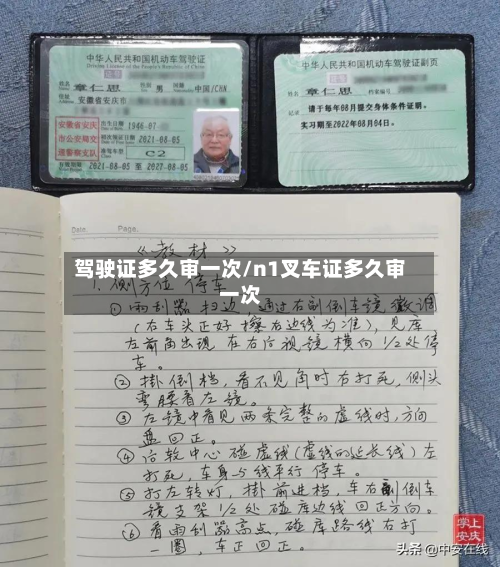 中华人民共和国机动车驾驶证
Driving License of the People's Republic of China
姓名 章仁思
性别 男 国籍 中国/CHN
住址 安徽省安庆市
安徽省安庆
市公安局交
通警察支队
出生日期 1946-07-
初次领证日期 2021-08-05
准驾车型 C2
2021-08-05 至 2027-08-05
中华人民共和国机动车驾驶证副页
姓名 章仁思
档案编号
记录
请于每年08月提交身体条件证明。
实习期至2022年08月04日。
Date. Page.
《教材》
驾驶证多久审一次/n1叉车证多久审
一次
1. 侧方位停车
①雨刮器扫边,通过右副倒车镜微调
(右车头正好擦右边线为准),见库
左前角出现在右后视镜横向1/2处停
车。
②挂倒档,看不见角时右打死,侧头
弯腰看左镜。
③左镜中看见两条完整的虚线时,方向
盘回正。
④后轮中心碰虚线(虚线的延长线)左
打死,车身与线平行停车。
⑤打左转灯,挂前进档,车右副倒车
镜支架1/2处碰库边线回正方向。
⑥看雨刮器高点,碰库路线右打
一圈,车正回正。
掌上
安庆
头条 @中安在线